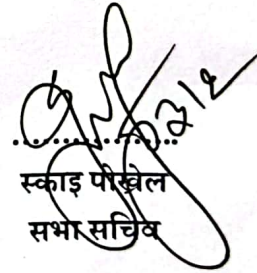 ..................
स्काइ पोखेल
सभा सचिव